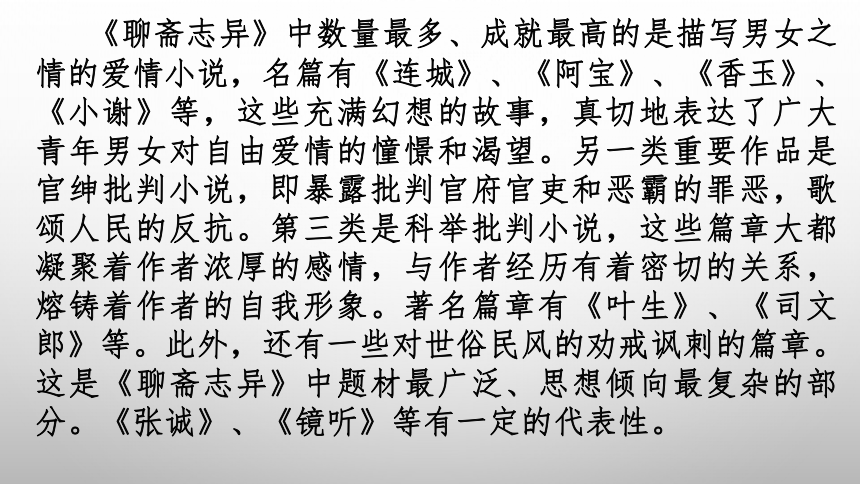 《聊斋志异》中数量最多、成就最高的是描写男女之
情的爱情小说，名篇有《连城》、《阿宝》、《香玉》、
《小谢》等，这些充满幻想的故事，真切地表达了广大
青年男女对自由爱情的憧憬和渴望。另一类重要作品是
官绅批判小说，即暴露批判官府官吏和恶霸的罪恶，歌
颂人民的反抗。第三类是科举批判小说，这些篇章大都
凝聚着作者浓厚的感情，与作者经历有着密切的关系，
熔铸着作者的自我形象。著名篇章有《叶生》、《司文
郎》等。此外，还有一些对世俗民风的劝戒讽刺的篇章。
这是《聊斋志异》中题材最广泛、思想倾向最复杂的部
分。《张诚》、《镜听》等有一定的代表性。